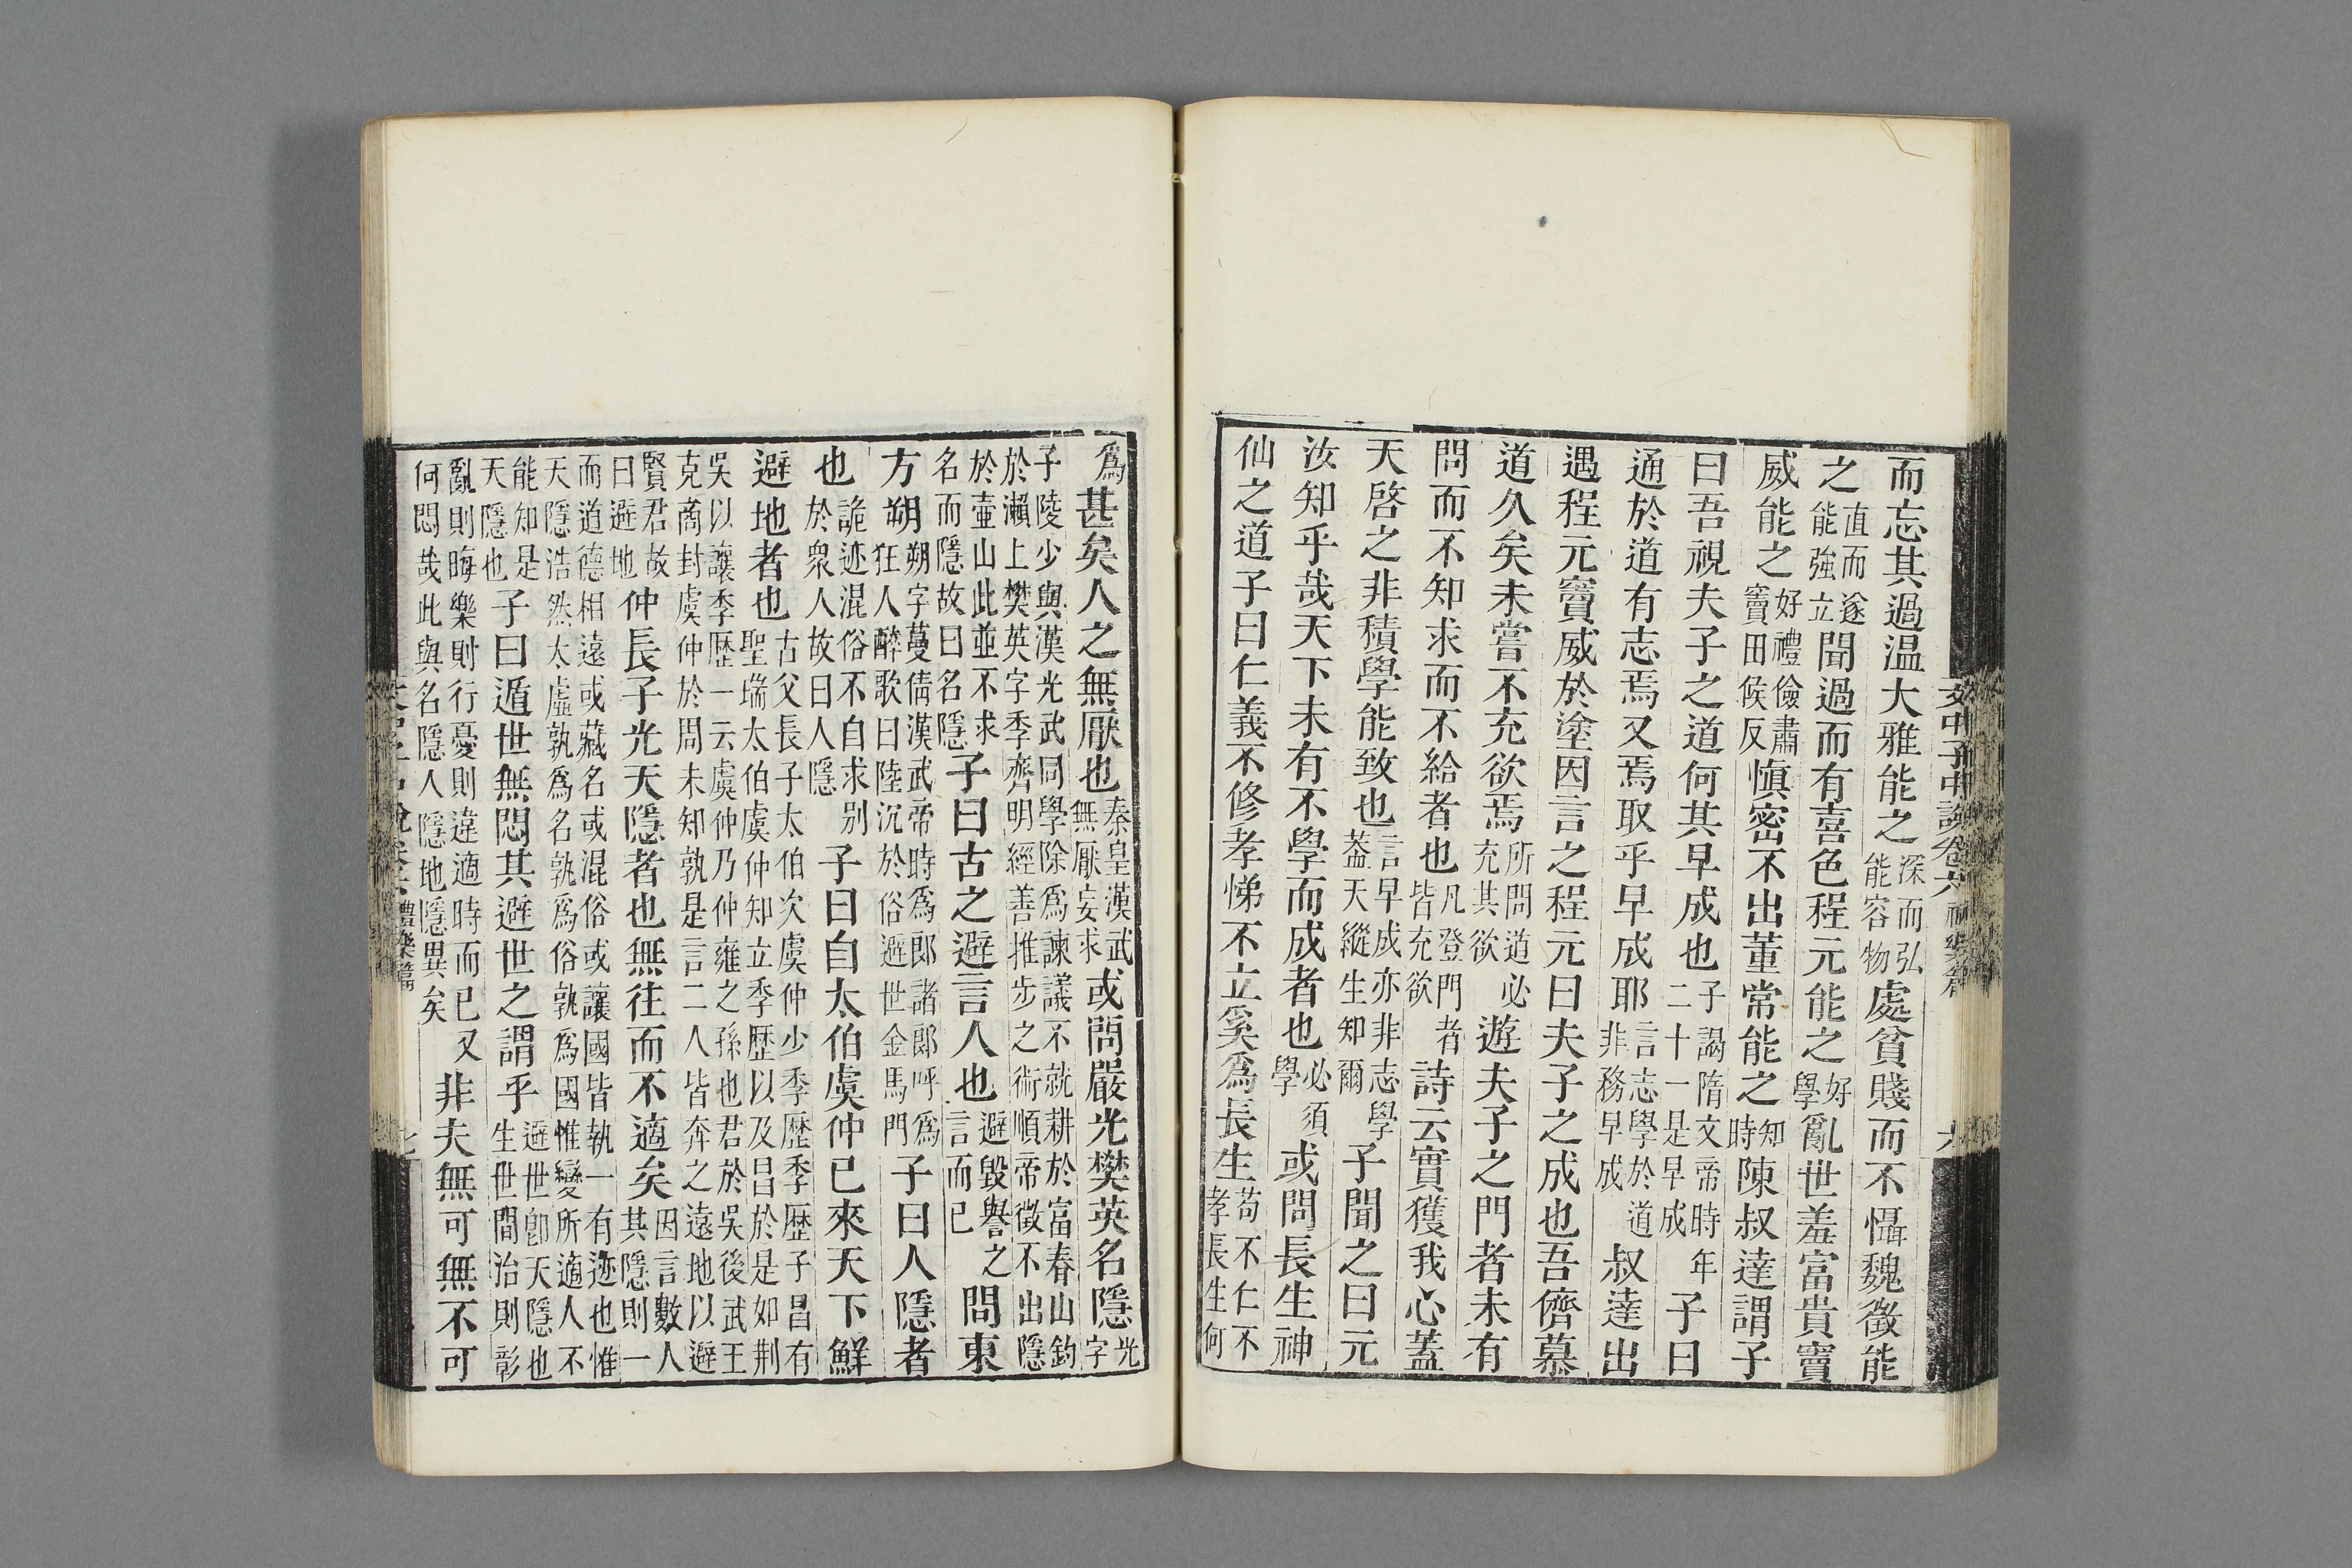 文中子中說卷六 禮樂篇 六
而忘其過温大雅能之深而弘能容物處貧賤而不懾魏徵能
之直而遂能強立聞過而有喜色程元能之好學亂世羞富貴竇
威能之好禮儉肅竇田候反慎密不出董常能之知時陳叔達謂子
曰吾視夫子之道何其早成也子謁隋文帝時年二十一是早成子曰
通於道有志焉又焉取乎早成耶言志學於道非務早成叔達出
遇程元竇威於塗因言之程元曰夫子之成也吾儕慕
道久矣未嘗不充欲焉所問道必充其欲遊夫子之門者未有
問而不知求而不給者也凡登門者皆充欲詩云實獲我心蓋
天啓之非積學能致也言早成亦非志學葢天縱生知爾子聞之曰元
汝知乎哉天下未有不學而成者也必須學或問長生神
仙之道子曰仁義不修孝悌不立奚爲長生苟不仁不孝長生何
爲甚矣人之無厭也秦皇漢武無厭妄求或問嚴光樊英名隱光字
子陵少與漢光武同學除爲諫議不就耕於富春山釣於瀨上樊英字季齊明經善推步之術順帝徵不出隱
於壺山此並不求名而隱故曰名隱子曰古之避言人也避毀譽之言而已問東
方朔朔字蔓倩漢武帝時爲郎諸郎呼爲狂人醉歌曰陸沉於俗避世金馬門子曰人隱者
也詭迹混俗不自求别於衆人故曰人隱子曰自太伯虞仲已來天下鮮
避地者也古父長子太伯次虞仲少季歷季歷子昌有聖瑞太伯虞仲知立季歷以及昌於是如荆
吳以讓季歷一云虞仲乃仲雍之孫也君於吳後武王克商封虞仲於周未知孰是言二人皆奔之遠地以避
賢君故曰避地仲長子光天隱者也無往而不適矣因言數人其隱則一
而道德相遠或藏名或混俗或讓國皆執一有迹也惟天隱浩然太虛孰爲名孰爲俗孰爲國惟變所適人不
能知是天隱也子曰遁世無悶其避世之謂乎避世即天隱也生世間治則彰
亂則晦樂則行憂則違適時而已又何悶哉此與名隱人隱地隱異矣非夫無可無不可
禮樂篇 七